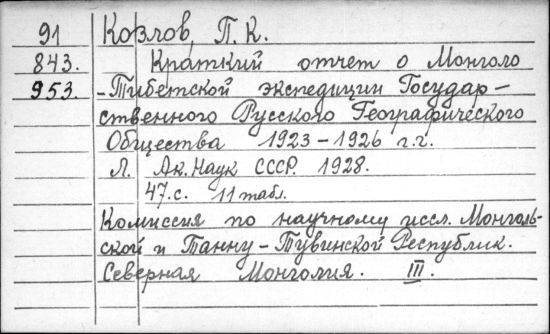 91 Козлов, П. К.
843. Краткий отчет о Монголо
953. -Тибетской экспедиции Государ-
ственного Русского Географического
Общества 1923-1926 г.г.
Л. Ак. Наук СССР. 1928.
47.с. 11 табл.
Комиссия по научному иссл. Монголь-
ской и Танну-Тувинской Республик.
Северная Монголия. III.